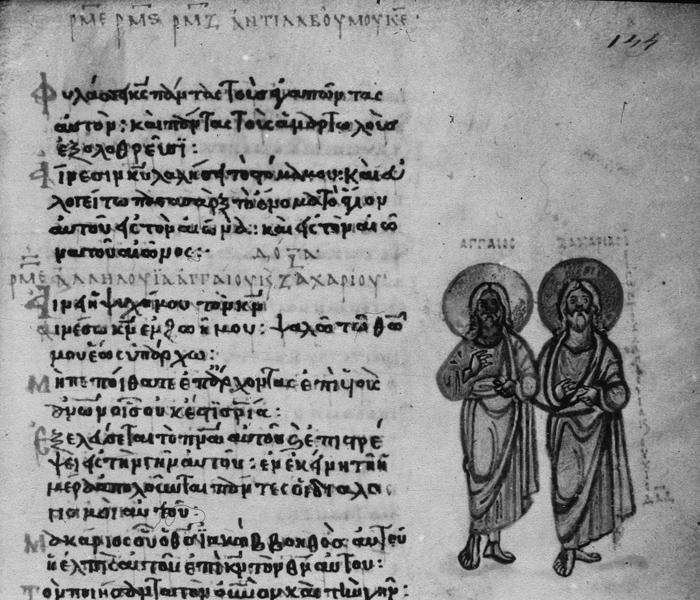 ΡΜΕ ΡΜϚ ΡΜΖ ΑΝΤΙΛΑΒΟΥ ΜΟΥ ΚΕ
144
Φυλάσσει κς πάντας τοὺς ἀγαπῶντας
αὐτόν: καὶ πάντας τοὺς ἁμαρτωλοὺς
ἐξολοθρεύσει:
Αἴνεσιν κυ λαλήσει τὸ στόμα μου: καὶ εὐ
λογείτω πᾶσα σὰρξ τὸ ὄνομα τὸ ἅγιον
αὐτοῦ εἰς τὸν αἰῶνα: καὶ εἰς τὸν αἰῶ
να τοῦ αἰῶνος:
ΡΜΕ ΑΛΛΗΛΟΥΪΑ ΑΓΓΑΙΟΥ Κ ΖΑΧΑΡΙΟΥ
Αἴνει ἡ ψυχή μου τὸν κν
αἰνέσω κν ἐν ζωῇ μου: ψαλῶ τῷ θῶ
μου ἕως ὑπάρχω:
Μὴ πεποίθατε ἐπ' ἄρχοντας ἐπὶ υἱοὺς
ἀνων οἷς οὐκ ἔστι σρία:
Ἐξελεύσεται τὸ πνα αὐτοῦ ἐπιστρέ
ψει εἰς τὴν γῆν αὐτοῦ: ἐν ἐκείνῃ τῇ
ἡμέρᾳ ἀπολοῦνται πάντες οἱ διαλο
γισμοὶ αὐτοῦ
Μακάριος οὗ ὁ θς ἰακὼβ βοηθὸς αὐτοῦ
ἡ ἐλπὶς αὐτοῦ ἐπὶ κν τὸν θν αὐτοῦ:
Τὸν ποιήσαντα τὸν οὐνον καὶ τὴν γῆν:
ΑΓΓΑΙΟС
ΖΑΧΑΡΙΑС